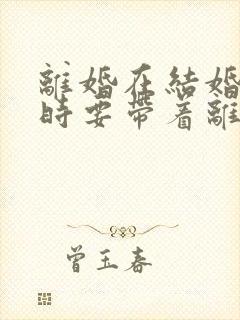 離婚在結婚
時要帶着離
曾玉春